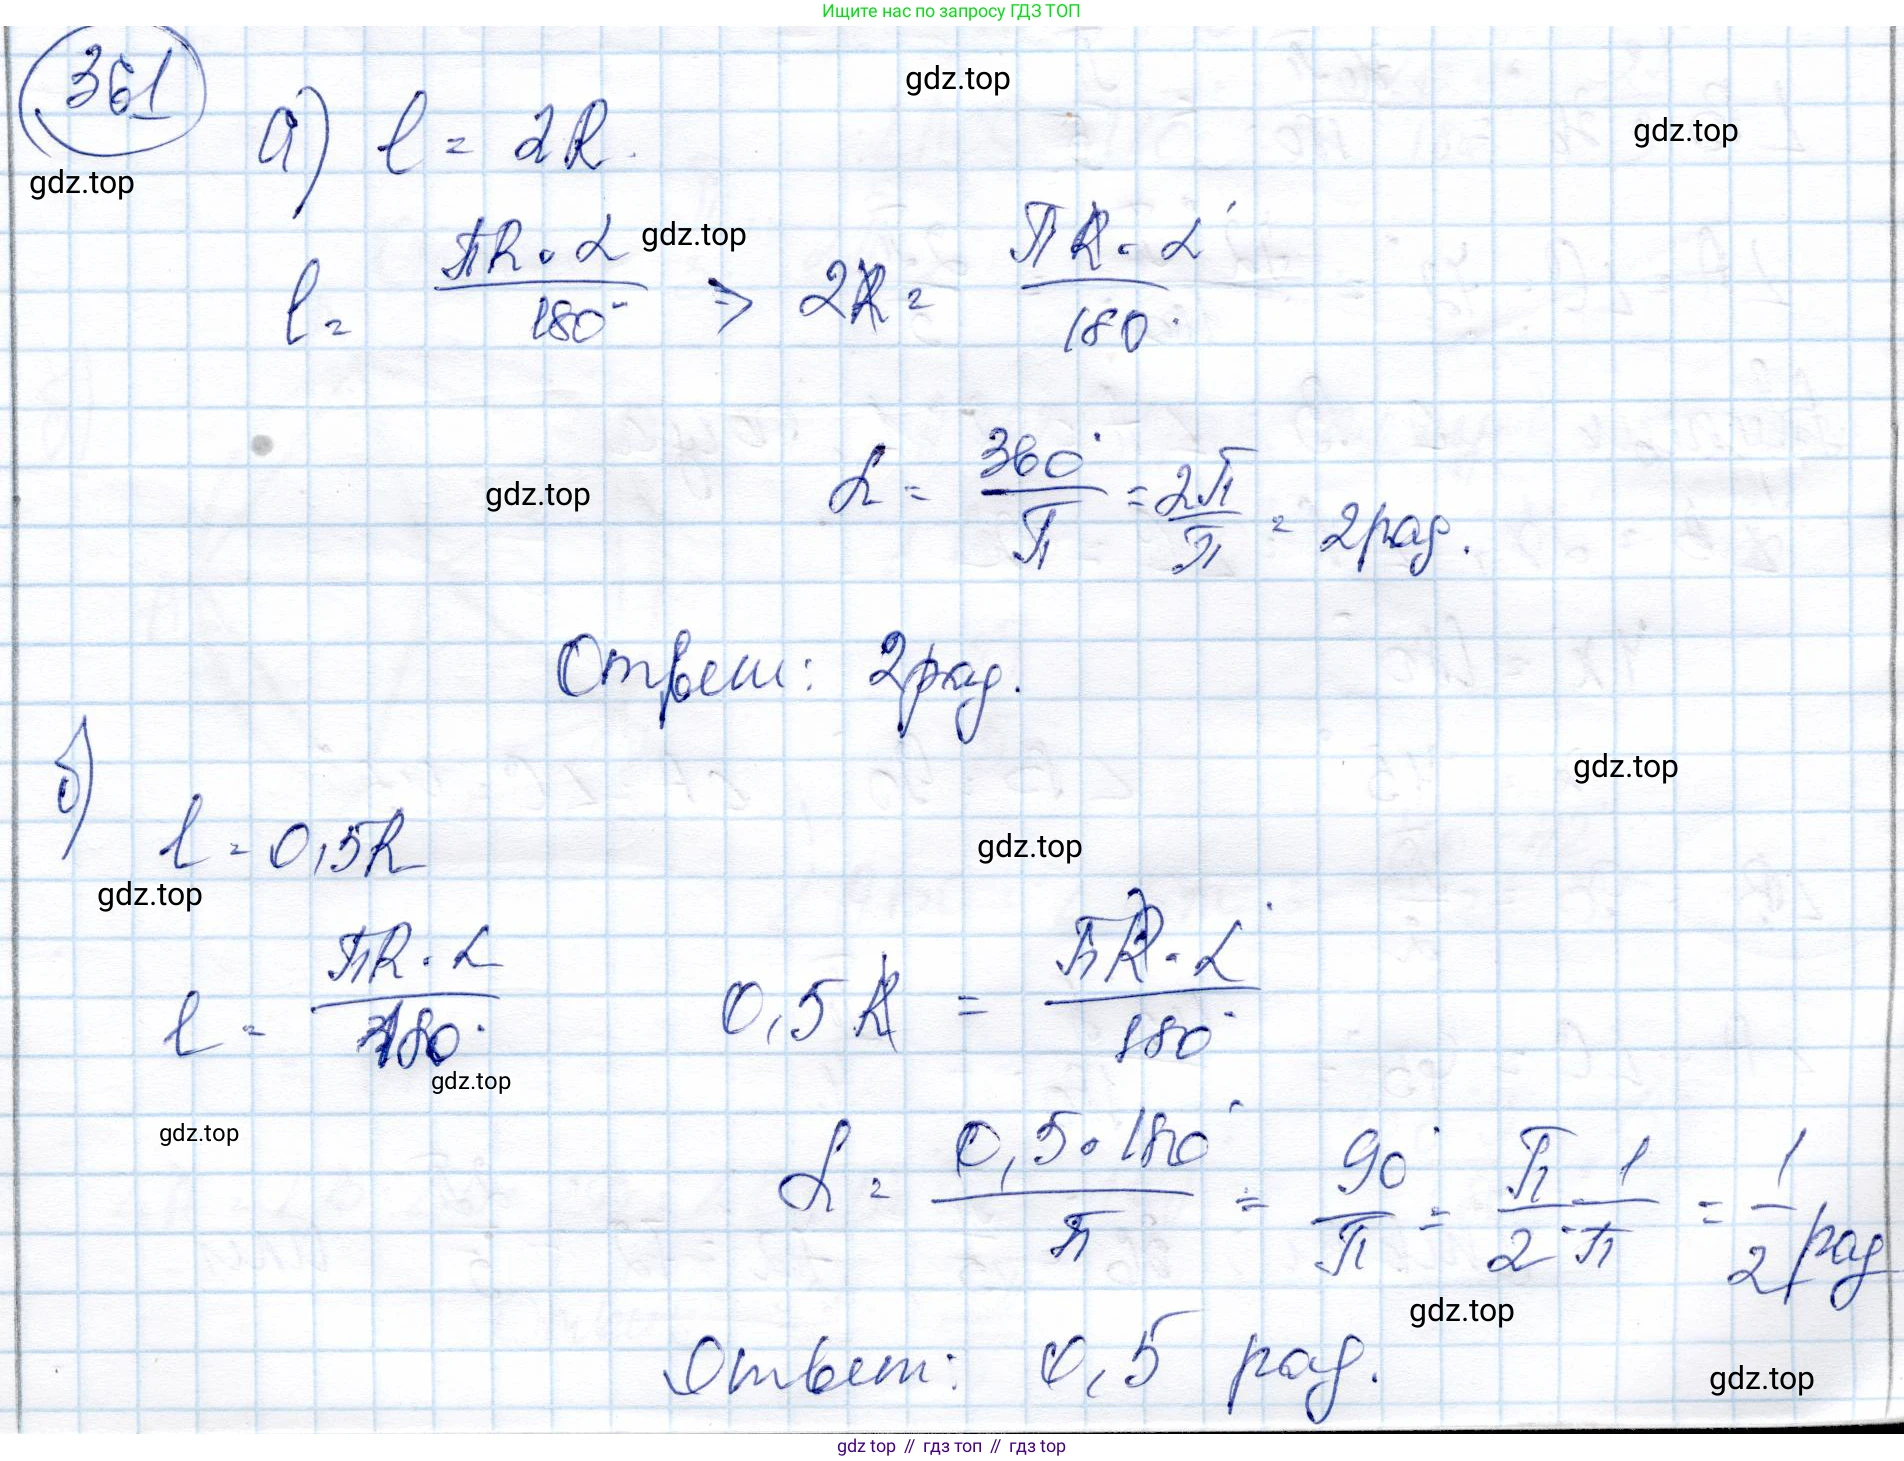 Ищите нас по запросу ГДЗ ТОП
361
gdz.top
gdz.top
gdz.top
а) l = 2R.
l = πR · α / 180° gdz.top => 2R = πR · α / 180°
gdz.top
α = 360° / π = 2π / π = 2 рад.
Ответ: 2 рад.
б)
gdz.top
l = 0,5R
gdz.top
gdz.top
l = πR · α / 180° 0,5R = πR · α / 180°
gdz.top
gdz.top
α = 0,5 · 180° / π = 90° / π = π · 1 / 2 · π = 1 / 2 рад
gdz.top
Ответ: 0,5 рад.
gdz.top
gdz top // гдз топ // гдз top